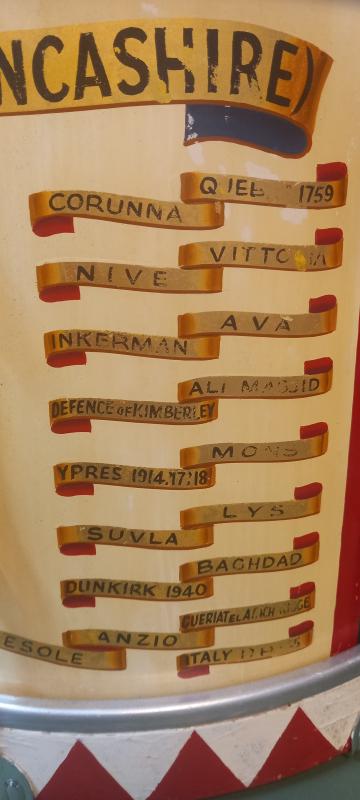 NCASHIRE)
1759
CORUNNA
NIVE
AVA
INKERMAN
ALI MASJID
DEFENCE OF KIMBERLEY
MONS
YPRES 1914.17.18
LYS
SUVLA
BAGHDAD
DUNKIRK 1940
ANZIO
ESOLE
ITALY